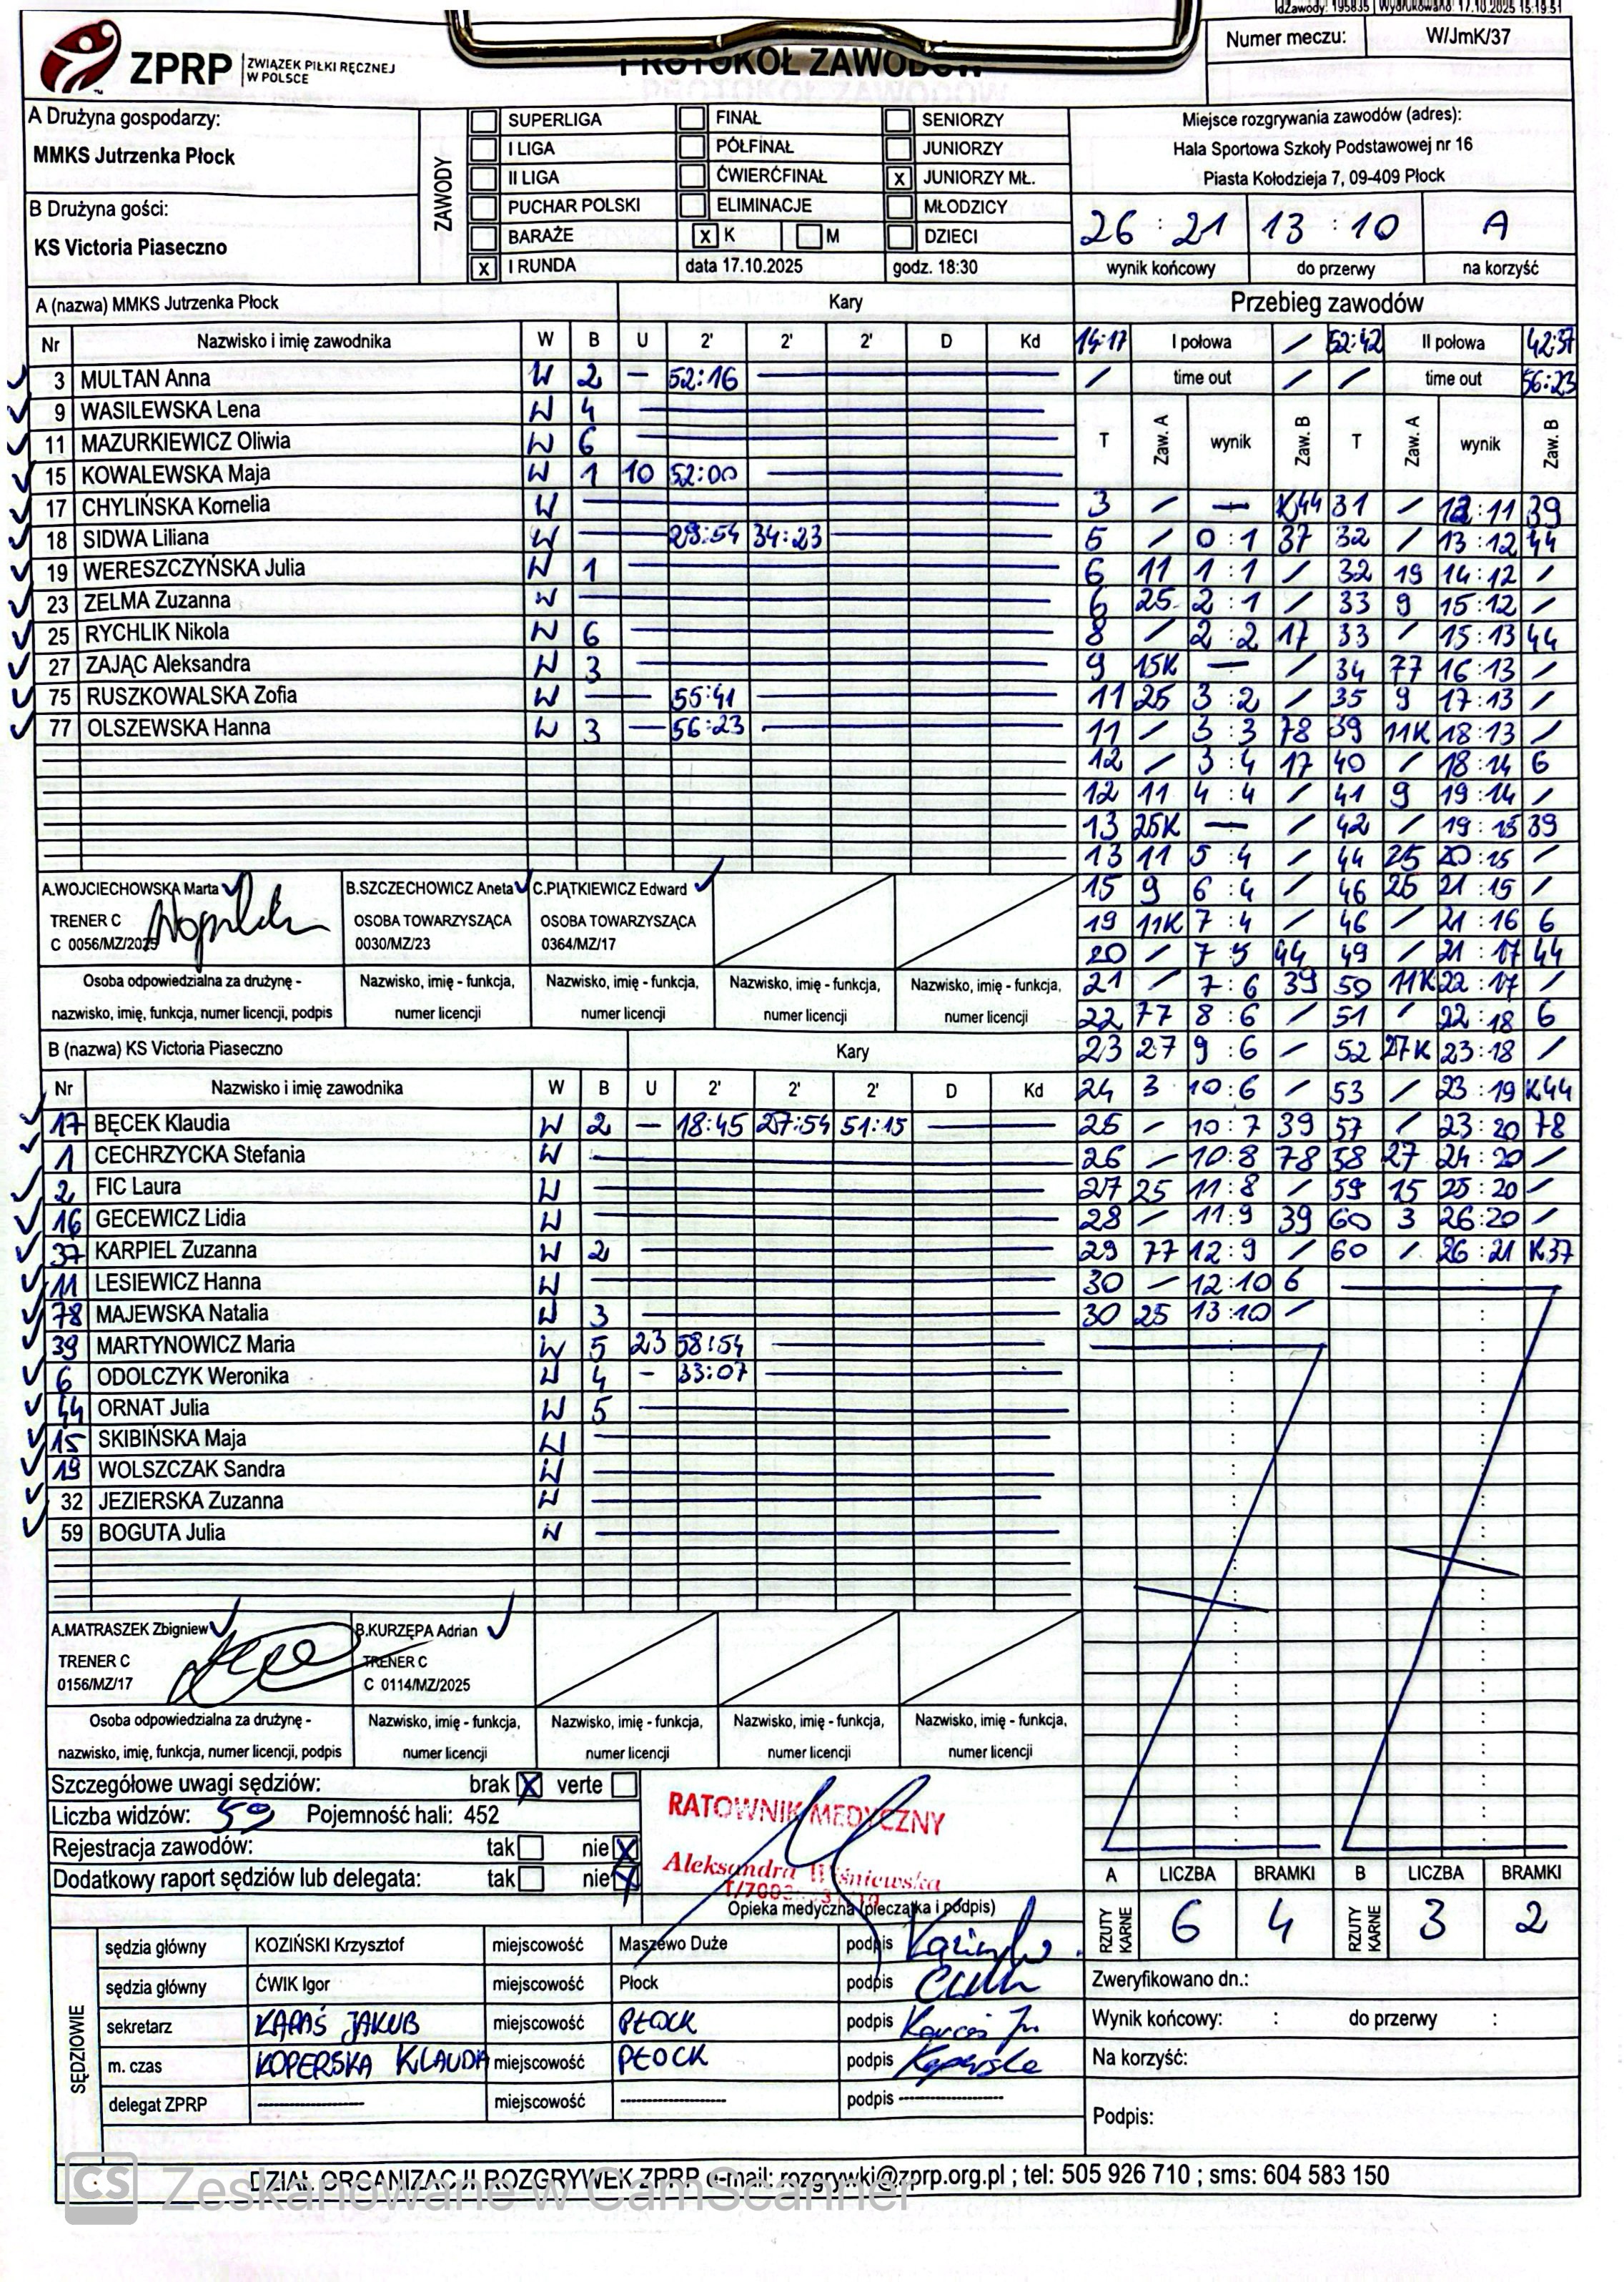 IdZawody: 195835 | Wydrukowano: 17.10.2025 15:19:51
Numer meczu: W/JmK/37
ZPRP ZWIĄZEK PIŁKI RĘCZNEJ W POLSCE
PROTOKÓŁ ZAWODÓW
A Drużyna gospodarzy:
MMKS Jutrzenka Płock
B Drużyna gości:
KS Victoria Piaseczno
ZAWODY
SUPERLIGA FINAŁ SENIORZY
I LIGA PÓŁFINAŁ JUNIORZY
II LIGA ĆWIERĆFINAŁ X JUNIORZY MŁ.
PUCHAR POLSKI ELIMINACJE MŁODZICY
BARAŻE X K M DZIECI
X I RUNDA data 17.10.2025 godz. 18:30
Miejsce rozgrywania zawodów (adres):
Hala Sportowa Szkoły Podstawowej nr 16
Piasta Kołodzieja 7, 09-409 Płock
26 : 21 13 : 10 A
wynik końcowy do przerwy na korzyść
A (nazwa) MMKS Jutrzenka Płock Kary
Nr Nazwisko i imię zawodnika W B U 2' 2' 2' D Kd
3 MULTAN Anna W 2 - 52:16
9 WASILEWSKA Lena W 4
11 MAZURKIEWICZ Oliwia W 6
15 KOWALEWSKA Maja W 1 10 52:00
17 CHYLIŃSKA Kornelia W
18 SIDWA Liliana W 29:54 34:23
19 WERESZCZYŃSKA Julia W 1
23 ZELMA Zuzanna W
25 RYCHLIK Nikola W 6
27 ZAJĄC Aleksandra W 3
75 RUSZKOWALSKA Zofia W 55:41
77 OLSZEWSKA Hanna W 3 - 56:23
A.WOJCIECHOWSKA Marta B.SZCZECHOWICZ Aneta C.PIĄTKIEWICZ Edward
TRENER C OSOBA TOWARZYSZĄCA OSOBA TOWARZYSZĄCA
C 0056/MZ/2025 0030/MZ/23 0364/MZ/17
Osoba odpowiedzialna za drużynę - Nazwisko, imię - funkcja, Nazwisko, imię - funkcja, Nazwisko, imię - funkcja, Nazwisko, imię - funkcja,
nazwisko, imię, funkcja, numer licencji, podpis numer licencji numer licencji numer licencji numer licencji
B (nazwa) KS Victoria Piaseczno Kary
Nr Nazwisko i imię zawodnika W B U 2' 2' 2' D Kd
17 BĘCEK Klaudia W 2 - 18:45 27:54 51:15
1 CECHRZYCKA Stefania W
2 FIC Laura W
16 GECEWICZ Lidia W
37 KARPIEL Zuzanna W 2
11 LESIEWICZ Hanna W
78 MAJEWSKA Natalia W 3
39 MARTYNOWICZ Maria W 5 23 58:54
6 ODOLCZYK Weronika W 4 - 33:07
44 ORNAT Julia W 5
15 SKIBIŃSKA Maja W
19 WOLSZCZAK Sandra W
32 JEZIERSKA Zuzanna W
59 BOGUTA Julia W
A.MATRASZEK Zbigniew B.KURZĘPA Adrian
TRENER C TRENER C
0156/MZ/17 C 0114/MZ/2025
Osoba odpowiedzialna za drużynę - Nazwisko, imię - funkcja, Nazwisko, imię - funkcja, Nazwisko, imię - funkcja, Nazwisko, imię - funkcja,
nazwisko, imię, funkcja, numer licencji, podpis numer licencji numer licencji numer licencji numer licencji
Przebieg zawodów
14:17 I połowa / 52:42 II połowa 42:37
/ time out / / time out 56:23
T Zaw. A wynik Zaw. B T Zaw. A wynik Zaw. B
3 / — K44 31 / 13:11 39
5 / 0:1 37 32 / 13:12 44
6 11 1:1 / 32 19 14:12 /
6 25 2:1 / 33 9 15:12 /
8 / 2:2 17 33 / 15:13 44
9 15K — / 34 77 16:13 /
11 25 3:2 / 35 9 17:13 /
11 / 3:3 78 39 11K 18:13 /
12 / 3:4 17 40 / 18:14 6
12 11 4:4 / 41 9 19:14 /
13 25K — / 42 / 19:15 39
13 11 5:4 / 44 25 20:15 /
15 9 6:4 / 46 25 21:15 /
19 11K 7:4 / 46 / 21:16 6
20 / 7:5 44 49 / 21:17 44
21 / 7:6 39 50 11K 22:17 /
22 77 8:6 / 51 / 22:18 6
23 27 9:6 / 52 27K 23:18 /
24 3 10:6 / 53 / 23:19 K44
25 - 10:7 39 57 / 23:20 78
26 - 10:8 78 58 27 24:20 /
27 25 11:8 / 59 15 25:20 /
28 - 11:9 39 60 3 26:20 /
29 77 12:9 / 60 / 26:21 K37
30 - 12:10 6
30 25 13:10 /
Szczegółowe uwagi sędziów: brak X verte
Liczba widzów: 50 Pojemność hali: 452
Rejestracja zawodów: tak nie X
Dodatkowy raport sędziów lub delegata: tak nie X
RATOWNIK MEDYCZNY
Aleksandra Wiśniewska
Opieka medyczna (pieczątka i podpis)
A LICZBA BRAMKI B LICZBA BRAMKI
RZUTY KARNE 6 4 RZUTY KARNE 3 2
SĘDZIOWIE
sędzia główny KOZIŃSKI Krzysztof miejscowość Maszewo Duże podpis
sędzia główny ĆWIK Igor miejscowość Płock podpis
sekretarz KAPAŚ JAKUB miejscowość PŁOCK podpis
m. czas KOPERSKA KLAUDIA miejscowość PŁOCK podpis
delegat ZPRP miejscowość podpis
Zweryfikowano dn.:
Wynik końcowy: : do przerwy :
Na korzyść:
Podpis:
DZIAŁ ORGANIZACJI ROZGRYWEK ZPRP e-mail: rozgrywki@zprp.org.pl ; tel: 505 926 710 ; sms: 604 583 150
CS Zeskanowane w CamScanner